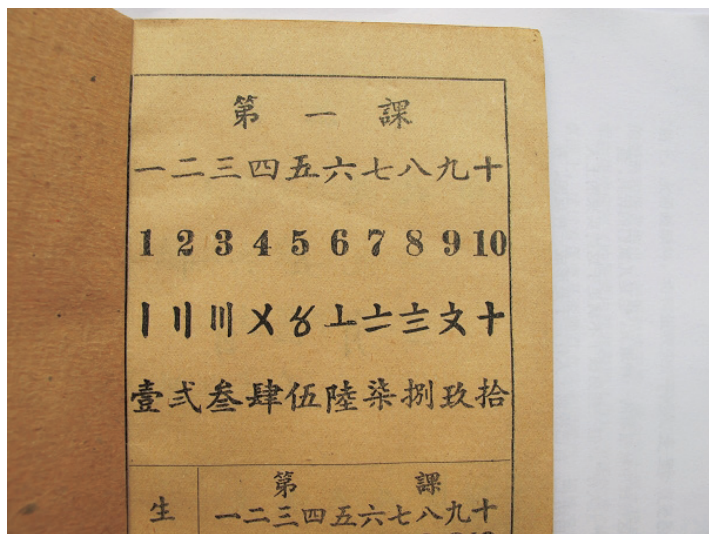 第一課
一二三四五六七八九十
1 2 3 4 5 6 7 8 9 10
〡〢〣〤〥〦〧〨〩十
壹弍叁肆伍陸柒捌玖拾
第 課
生 一二三四五六七八九十